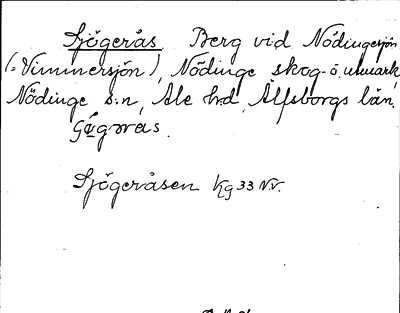 Sjögerås Berg vid Nödingesjön
(= Vimmersjön), Nödinge skog- o. utmark,
Nödinge s:n, Ale hd, Älfsborgs län.
Sjögeråsen Kg 33 N.V.